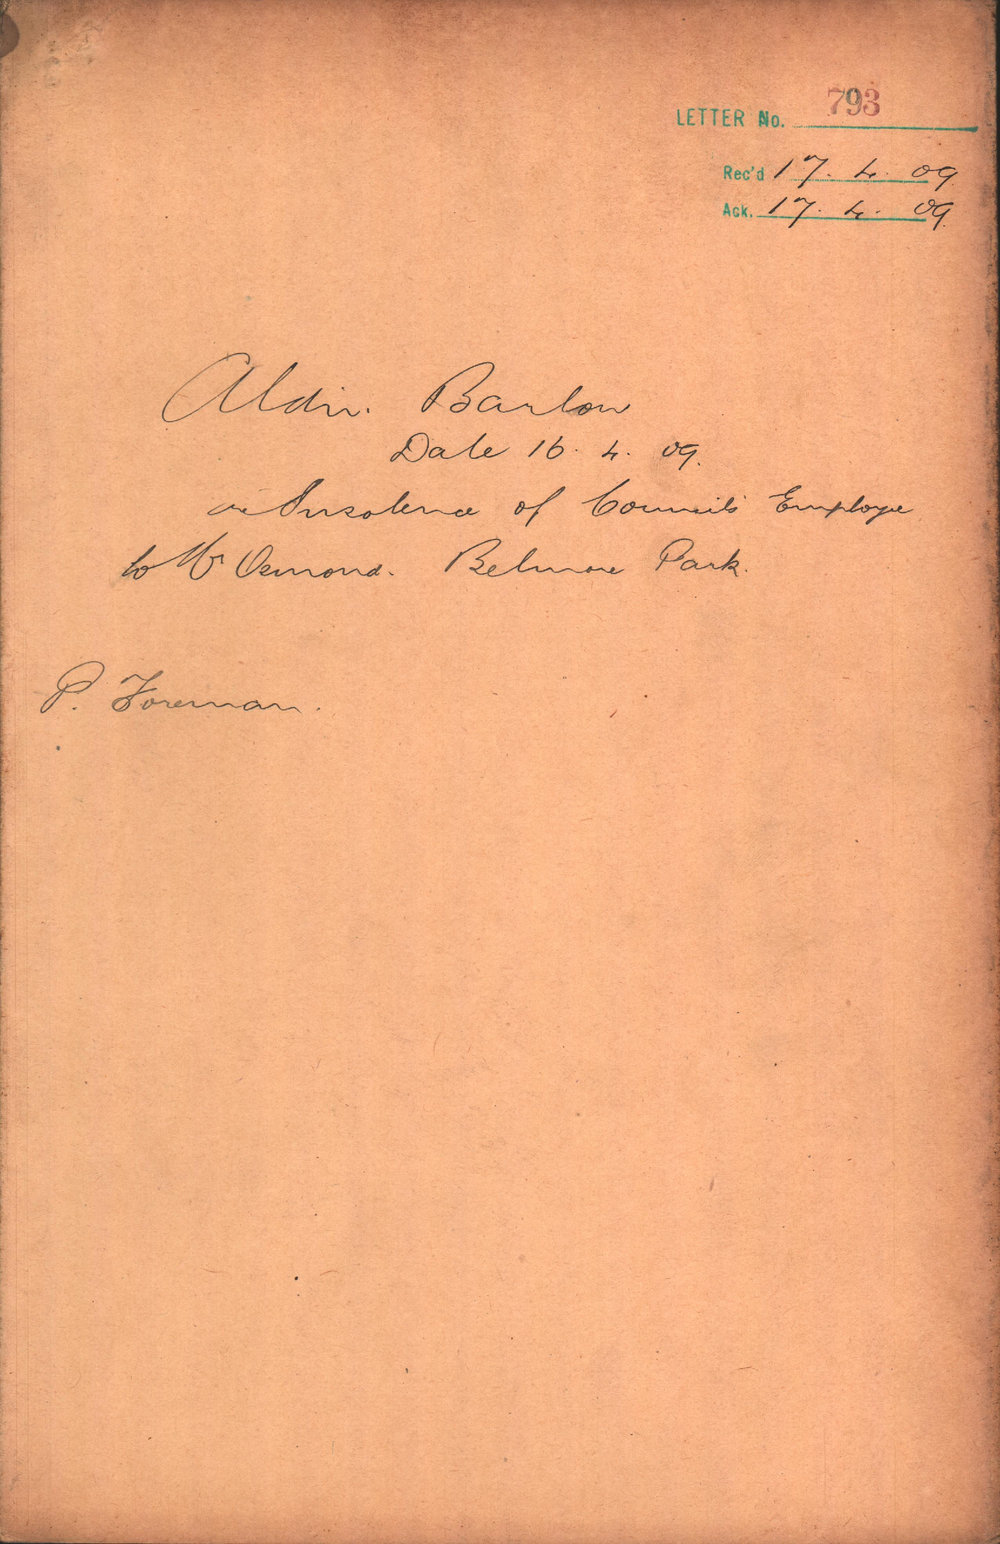 LETTER No. 793
Rec'd 17. 4. 09.
Ack. 17. 4. 09.
Aldn. Barlow
Date 16. 4. 09.
re Insolence of Council's Employe
to Mr Osmond. Belmore Park.
P. Foreman.